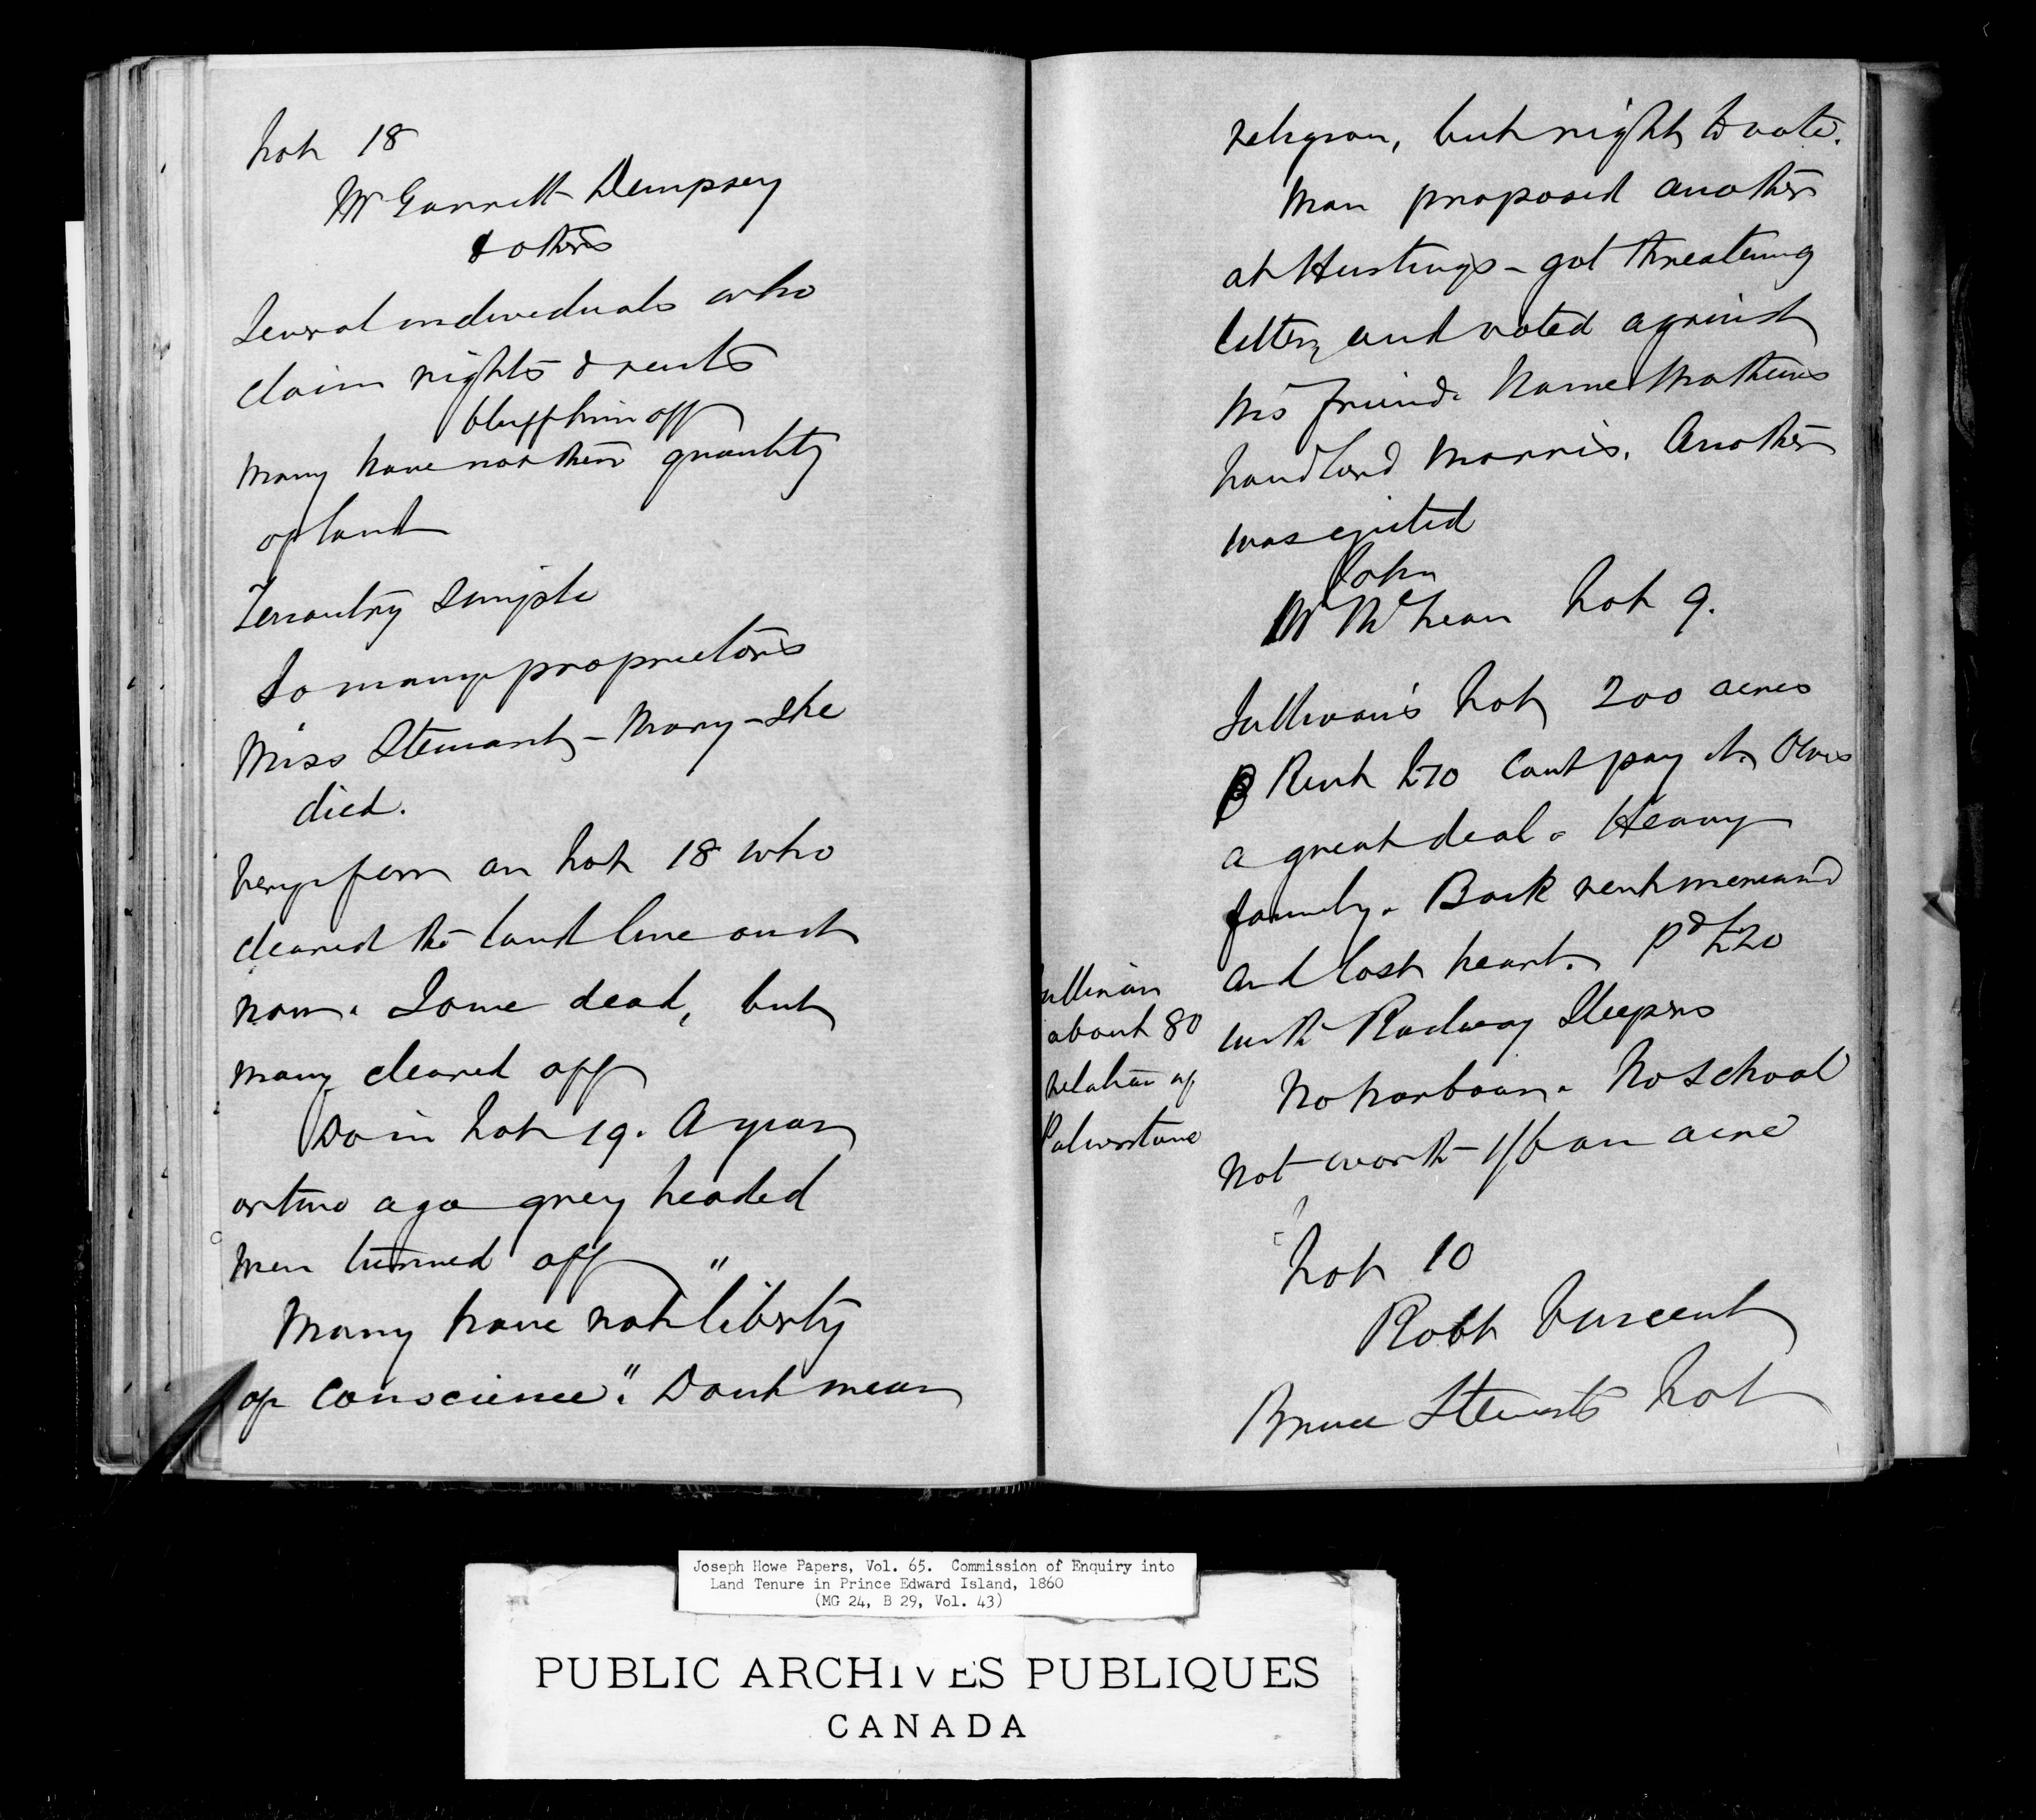 Lot 18
Mr Garrett Dempsey
& others
Several individuals who
claim rights & rents
bluff him off
Many have not their quantity
of land
Tenantry simple
So many proprietors
Miss Stewart - Mary - She
died.
Very few on Lot 18 who
cleared the land live on it
now. Some dead, but
many cleared off
Do in Lot 19. A year
or two ago grey headed
men turned off
Many have not "liberty
of conscience". Dont mean
religion, but right to vote.
Man proposed another
at Hustings - got threatening
letter, and voted against
his friend. Name Mathews
Landlord Morris. Another
was ejected
John
Mr McLean Lot 9.
Sullivan's Lot, 200 acres
Rent £70 Cant pay it. Owes
a great deal. Heavy
family. Back rent increased
and lost heart. Pd £20
with Railway Sleepers
No harbour. No School
Not worth 1/6 an acre
ullivan
about 80
relation of
Palmerstone
Lot 10
Robt Vincent
Bruce Stewarts Lot
Joseph Howe Papers, Vol. 65. Commission of Enquiry into
Land Tenure in Prince Edward Island, 1860
(MG 24, B 29, Vol. 43)
PUBLIC ARCHIVES PUBLIQUES
CANADA